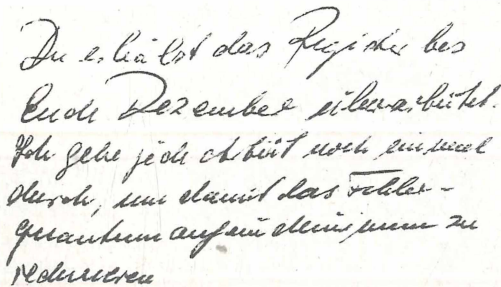 Du erhälst das Register bis
Ende Dezember überarbeitet.
Ich gehe jede Arbeit noch einmal
durch, um damit das Fehler-
quantum auf ein Minimum zu
reduzieren